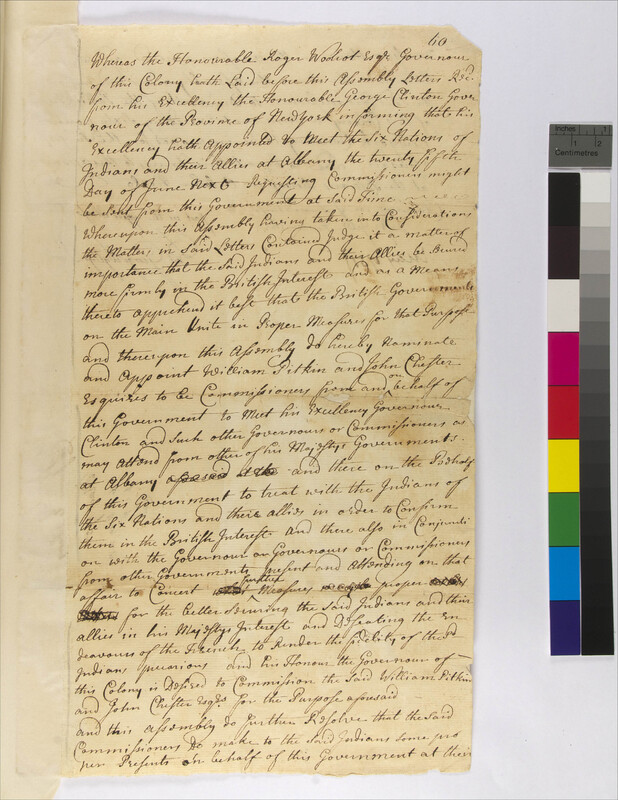 60
Whereas the Honourable Roger Wolcot Esqr Governour
of this Colony hath Laid before this Assembly Letters Recd
from his Excellency the Honourable George Clinton Gover
nour of the Province of New york informing that his
Excellency hath Appointed to Meet the Six Nations of
Indians and their Allies at Albany the twenty fifth
Day of June Next Requesting Commissioners might
be Sent from this Government at Said Time
Whereupon this Assembly having taken into Consideration
the Matters in Said Letters Contained Judge it a matter of
importance that the Said Indians and their Allies be Secured
more firmly in the British Interest and as a Means
thereto apprehend it best that the British Governments
on the Main Unite in Proper Measures for that Purpose
and thereupon this Assembly do hereby Nominate
and Appoint William Pitkin and John Chester
Esquires to be Commissioners from and on behalf of
this Government to Meet his Excellency Governour
Clinton and Such other Governours or Commissioners as
may Attend from other of his Majestys Governments
at Albany and there on the Behalf
of this Government to treat with the Indians of
the Six Nations and their allies in order to Confirm
them in the British Interest and there also in Conjuncti
on with the Governour or Governours or Commissioners
from other Governments present and Attending on that
affair to Concert Measures proper
for the better Securing the Said Indians and their
allies in his Majestys Interest and Defeating the En
deavours of the French to Render the fidelity of the Sd
Indians precarious and his Honour the Governour of
this Colony is Desired to Commission the Said William Pitkin
and John Chester Esqrs for the Purpose aforesaid
and this Assembly do further Resolve that the Said
Commissioners Do make to the Said Indians some pro
per Presents on behalf of this Government at their
Inches 1
1 2
Centimetres